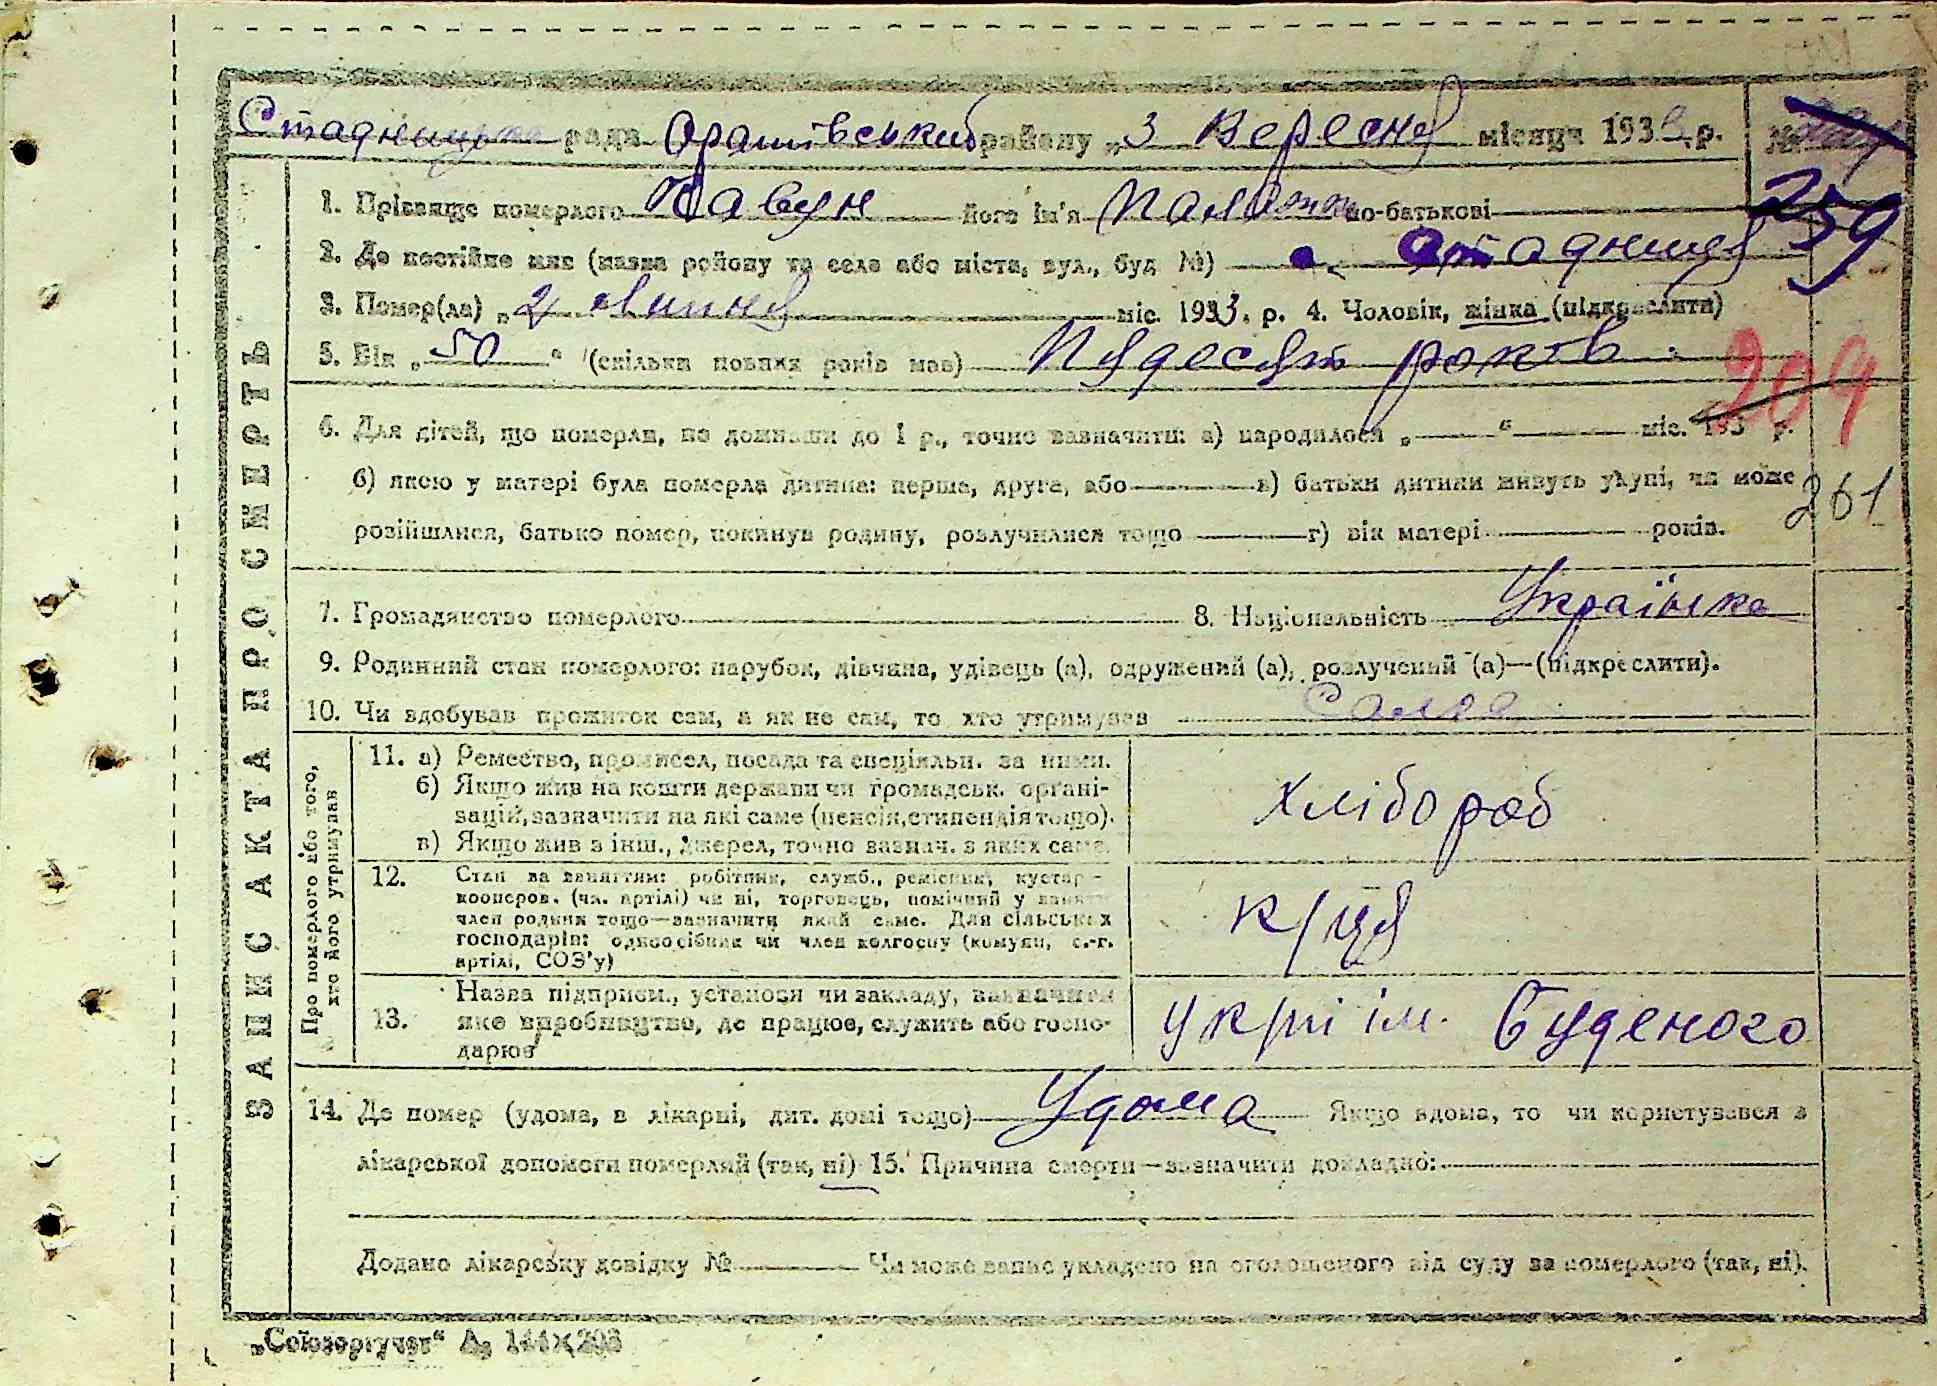 Стадницька рада Оратівський району „3 Вересня місяця 1933 р. №
259
1. Прізвище померлого Кавун його ім'я по-батькові
2. Де постійно жив (назва району та села або міста, вул., буд №) с. Стадниця
3. Помер(ла) „2 Липня міс. 1933. р. 4. Чоловік, жінка (підкреслити)
5. Вік „50“ (скільки повних років мав) Пядесят років.
204
6. Для дітей, що померли, не доживши до 1 р., точно зазначити: а) народилося „ “ міс. 193 р.
б) якою у матері була померла дитина: перша, друга, або в) батьки дитини живуть укупі, чи може
261
розійшлися, батько помер, покинув родину, розлучилися тощо г) вік матері років.
7. Громадянство померлого 8. Національність Українка
9. Родинний стан померлого: парубок, дівчина, удівець (а), одружений (а), розлучений (а)—(підкреслити).
10. Чи здобував прожиток сам, а як не сам, то хто утримував Сама
ЗАПИС АКТА ПРО СМЕРТЬ
Про померлого або того, хто його утримував
11. а) Ремество, промисел, посада та спеціяльн. за ними.
б) Якщо жив на кошти держави чи громадськ. органі-
зацій, зазначити на які саме (пенсія, стипендія тощо).
в) Якщо жив з інш., джерел, точно зазнач. з яких саме.
хлібороб
12. Стан за заняттям: робітник, служб., ремісник, кустар-
кооперов. (чл. артілі) чи ні, торговець, помічний у занятт.
член родини тощо—зазначити який саме. Для сільських
господарів: одноосібник чи член колгоспу (комуни, с.-г.
артілі, СОЗ'у)
к/ця
13. Назва підприєм., установи чи закладу, зазначити
яке виробництво, де працює, служить або госпо-
дарює
у к/гі ім. Буденого
14. Де помер (удома, в лікарні, дит. домі тощо) Удома Якщо вдома, то чи користувався з
лікарської допомоги померлий (так, ні) 15. Причина смерти—зазначити докладно:
Додано лікарську довідку № Чи може запис укладено на оголошеного від суду за померлого (так, ні).
„Союзоргучет“ А₅ 144×203